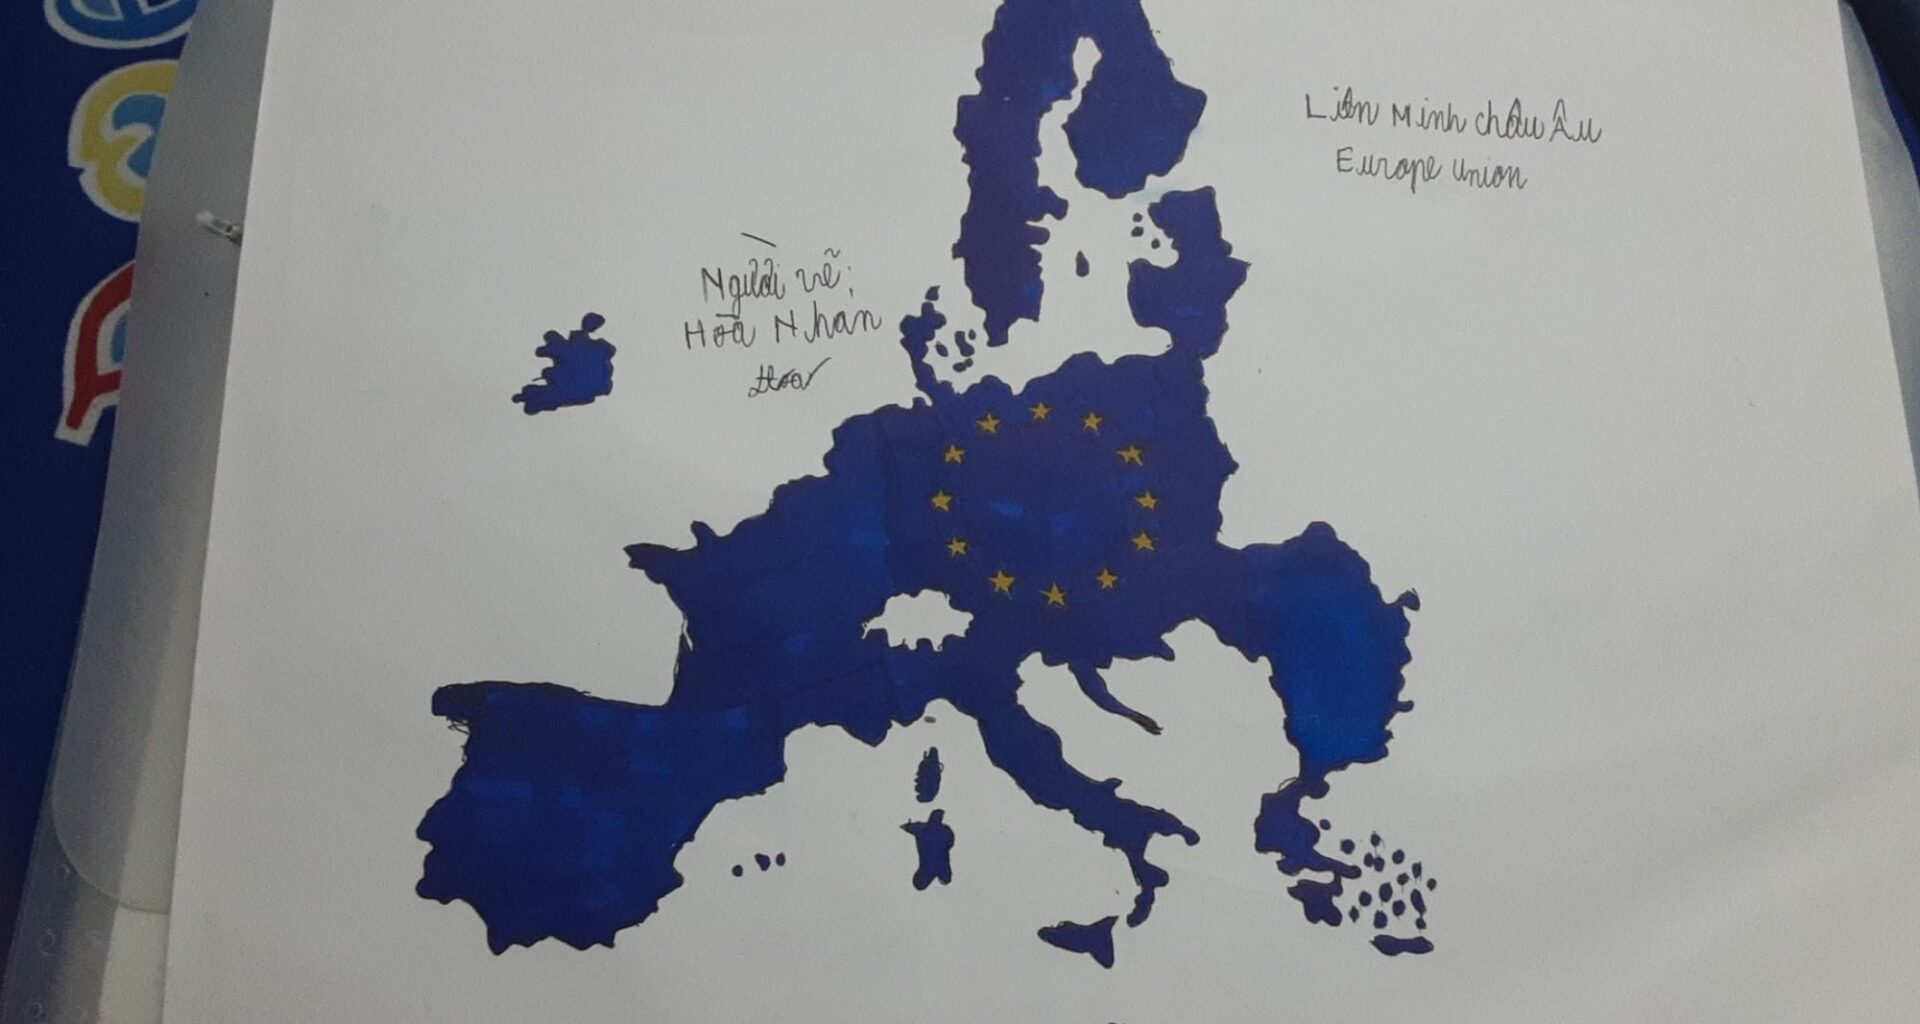 Liên Minh châu Âu
Europe union
Người vẽ:
Hoà Nhân